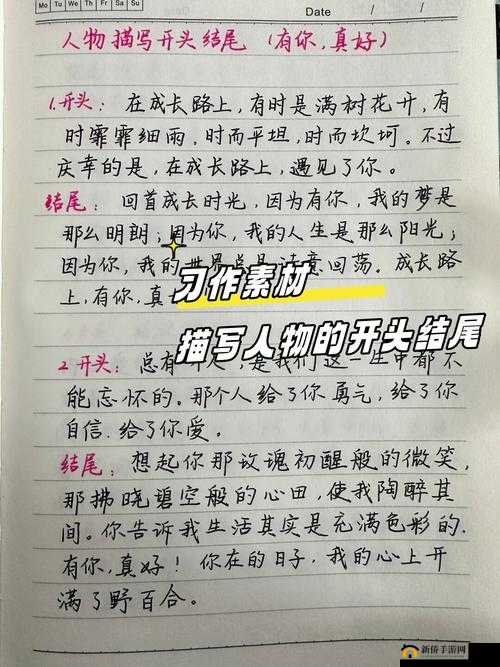 Mo Tu We Th Fr Sa Su
Date / /
人物描写开头结尾（有你,真好）
1.开头：在成长路上,有时是满树花开,有
时霏霏细雨,时而平坦,时而坎坷。不过
庆幸的是,在成长路上,遇见了你。
结尾：回首成长时光,因为有你,我的梦是
那么明朗;因为你,我的人生是那么阳光;
因为你,我的世界总是 意回荡。成长路
上,有你,真
习作素材
描写人物的开头结尾
2.开头：总有一 人,是我们这一生中都不
能忘怀的。那个人给了你勇气,给了你
自信.给了你爱。
结尾：想起你那玫瑰初醒般的微笑,
那拂晓碧空般的心田,使我陶醉其
间。你告诉我生活其实是充满色彩的.
有你,真好！你在的日子,我的心上开
满了野百合。
新侨手游网